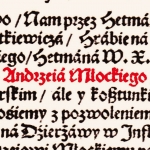 po / Nam przez Hetmá
tkiewiczá / Hrábiená
iego / Hetmáná W. X.
Andrzeiá Młockiego
rskim / ále y kosztunk
ośiemy z pozwoleniem
ná Dźierżáwy w Infl